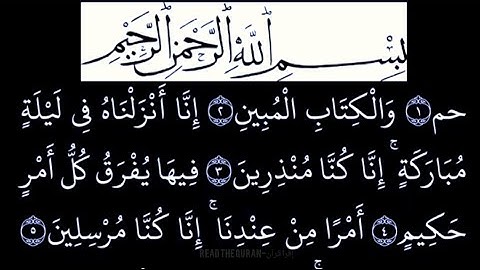 بِسْمِ اللَّهِ الرَّحْمَٰنِ الرَّحِيمِ
حم ١ وَالْكِتَابِ الْمُبِينِ ٢ إِنَّا أَنْزَلْنَاهُ فِي لَيْلَةٍ
مُبَارَكَةٍ ۚ إِنَّا كُنَّا مُنْذِرِينَ ٣ فِيهَا يُفْرَقُ كُلُّ أَمْرٍ
حَكِيمٍ ٤ أَمْرًا مِنْ عِنْدِنَا ۚ إِنَّا كُنَّا مُرْسِلِينَ ٥
READTHEQURAN-اقرأ قرآن